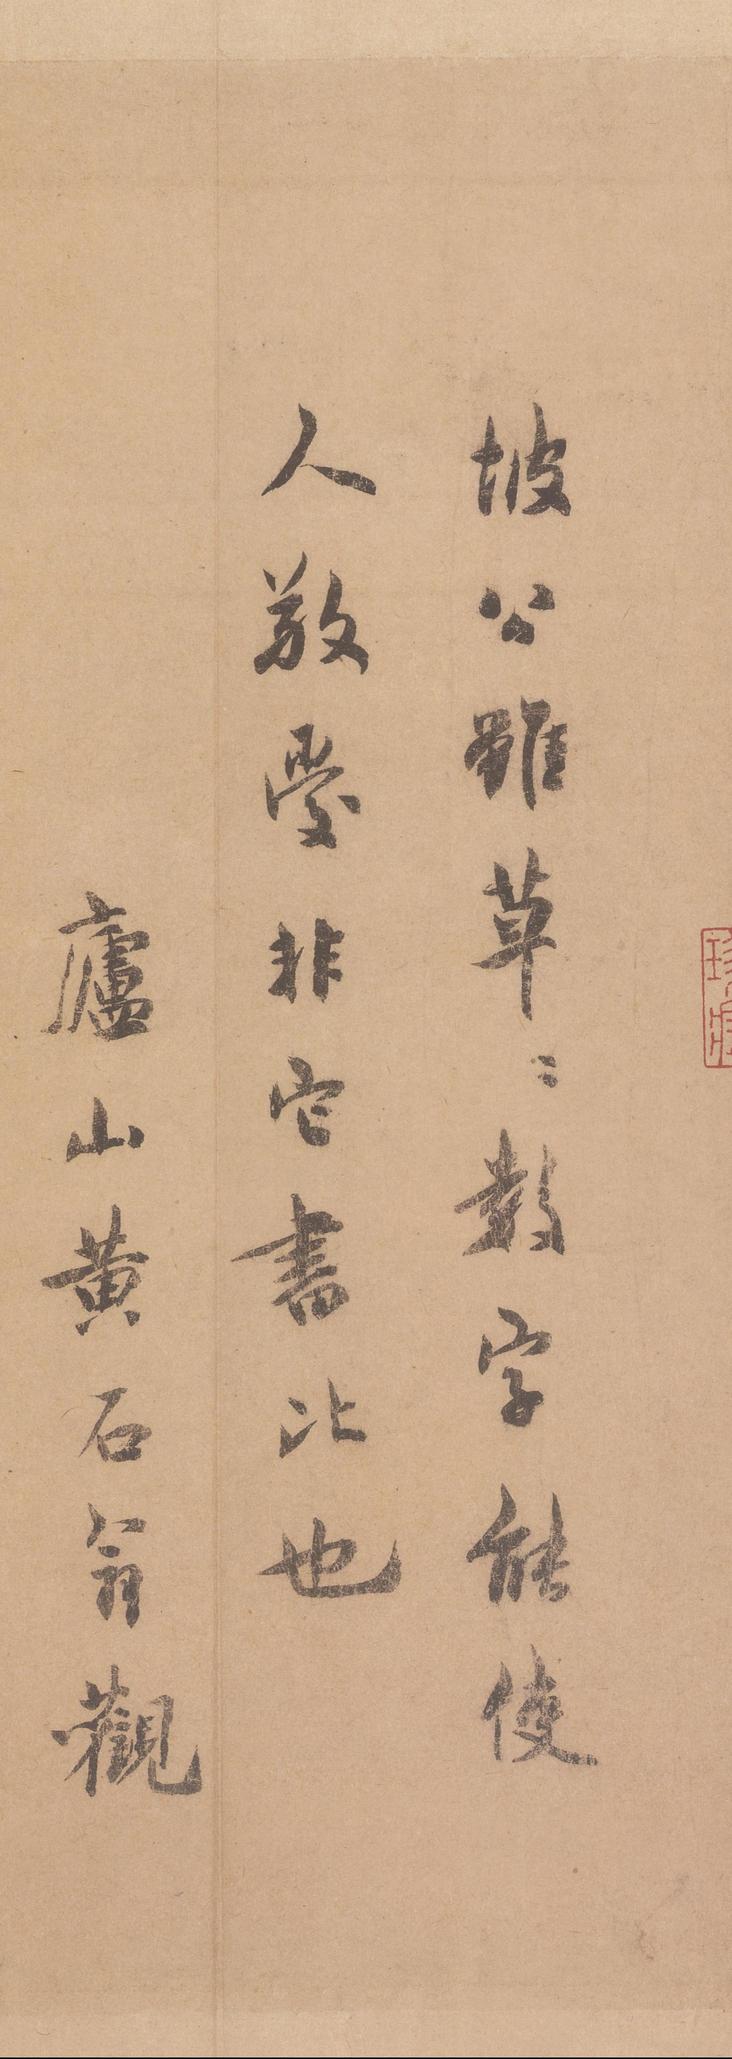 坡公雖草〻數字能使
人敬愛非它書比也
廬山黃石翁觀